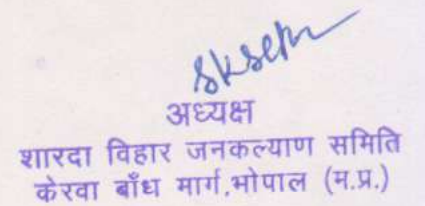 sksem
अध्यक्ष
शारदा विहार जनकल्याण समिति
केरवा बाँध मार्ग,भोपाल (म.प्र.)